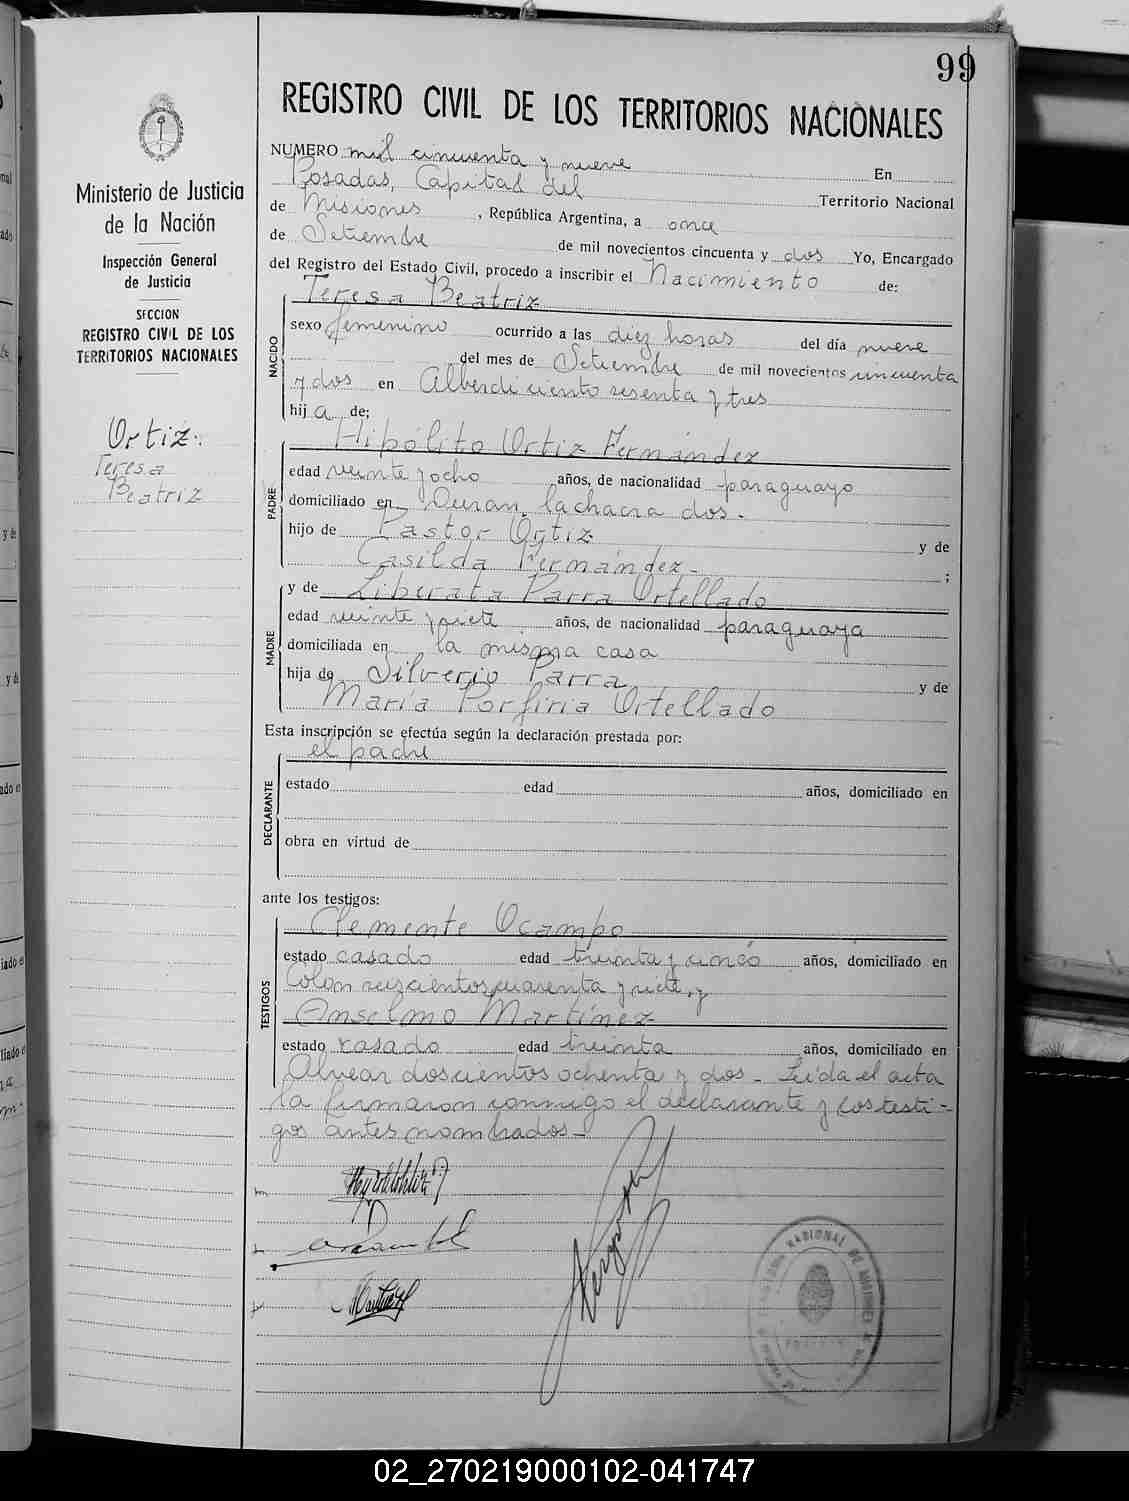 99
REGISTRO CIVIL DE LOS TERRITORIOS NACIONALES
Ministerio de Justicia
de la Nación
Inspección General
de Justicia
SECCION
REGISTRO CIVIL DE LOS
TERRITORIOS NACIONALES
Ortiz
Teresa
Beatriz
NUMERO mil cincuenta y nueve En
Posadas, Capital del Territorio Nacional
de Misiones, República Argentina, a once
de Setiembre de mil novecientos cincuenta y dos Yo, Encargado
del Registro del Estado Civil, procedo a inscribir el Nacimiento de:
NACIDO
Teresa Beatriz
sexo femenino ocurrido a las diez horas del día nueve
del mes de Setiembre de mil novecientos cincuenta
y dos en Alberdi ciento sesenta y tres
hija de;
PADRE
Hipólito Ortiz Fernández
edad veinte y ocho años, de nacionalidad paraguayo
domiciliado en Duran, la chacra dos.
hijo de Pastor Ortiz y de
Casilda Fernández - ;
MADRE
y de Liberata Parra Ortellado
edad veinte y siete años, de nacionalidad paraguaya
domiciliada en la misma casa
hija de Silverio Parra y de
María Porfiria Ortellado
Esta inscripción se efectúa según la declaración prestada por:
el padre
DECLARANTE
estado edad años, domiciliado en
obra en virtud de
ante los testigos:
TESTIGOS
Clemente Ocampo
estado casado edad treinta y cinco años, domiciliado en
Colon seiscientos cuarenta y siete, y
Anselmo Martínez
estado casado edad treinta años, domiciliado en
Alvear doscientos ochenta y dos - Leída el acta
la firmaron conmigo el declarante y los testi-
gos antes nombrados -
02_270219000102-041747